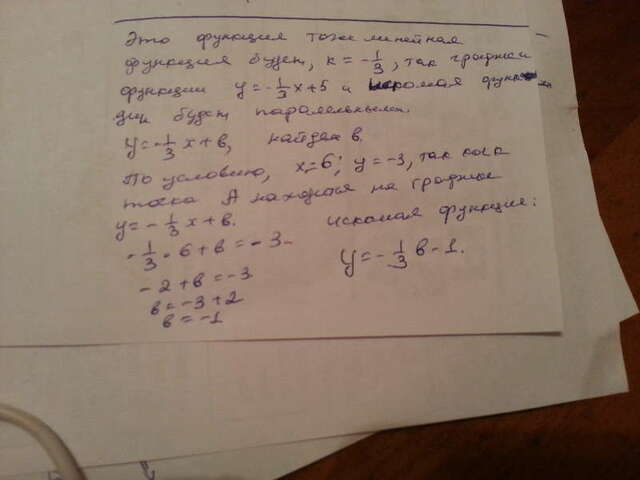 Это функция тоже линейная
функция будет, k = -1/3, так графики
функции y = -1/3x+5 и искомая функ
ции будет паралельными.
y = -1/3 x + в, найдем в.
По условию, x = 6; y = -3, так как
точка A находится на графике
y = -1/3 x + в.
-1/3 · 6 + в = -3
-2 + в = -3
в = -3 + 2
в = -1
искомая функция:
y = -1/3 в - 1.